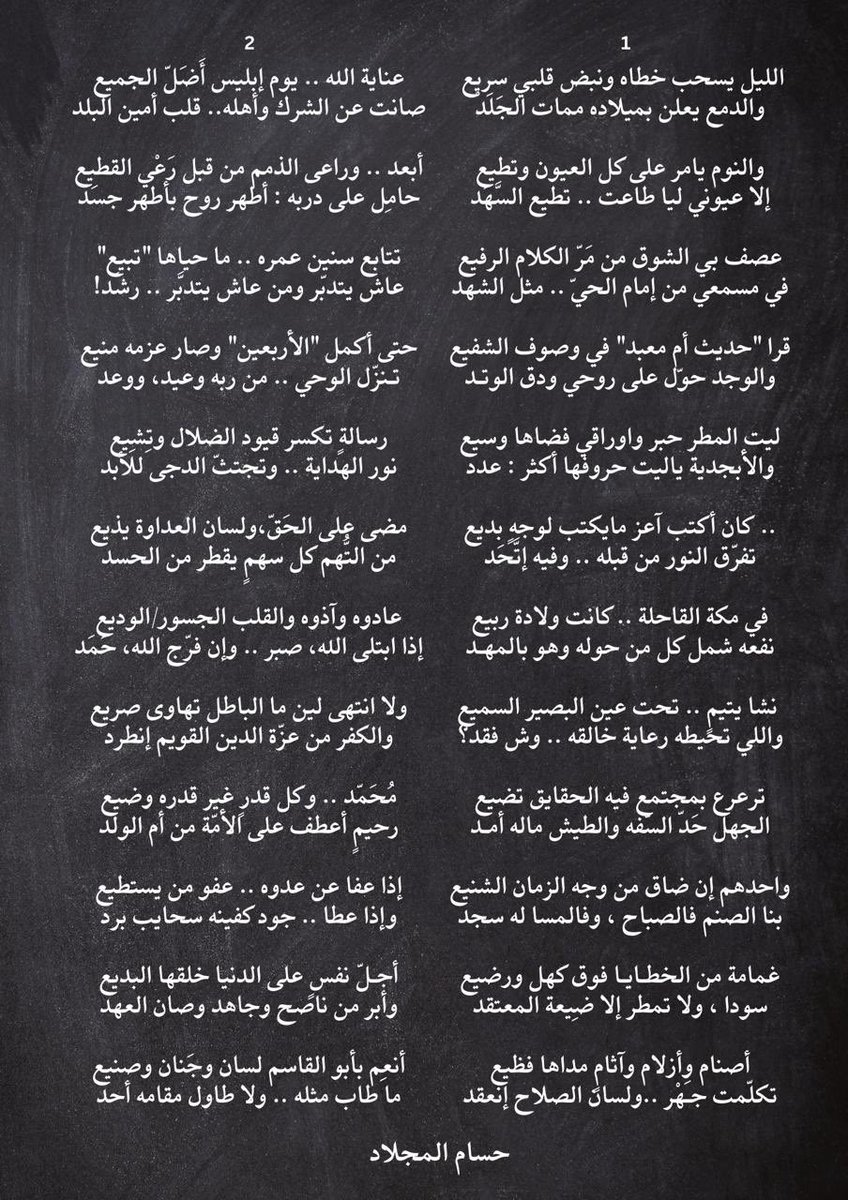 1
الليل يسحب خطاه ونبض قلبي سريع
والدمع يعلن بميلاده ممات الجَلَدْ
والنوم يامر على كل العيون وتطيع
إلا عيوني ليا طاعت .. تطيع السَّهَدْ
عصف بي الشوق من مَرّ الكلام الرفيع
في مسمعي من إمام الحيّ .. مثل الشهد
قرا "حديث أم معبد" في وصوف الشفيع
والوجد حوّل على روحي ودق الوتـد
ليت المطر حبر واوراقي فضاها وسيع
والأبجدية ياليت حروفها أكثر : عدد
.. كان أكتب آعز مايكتب لوجهٍ بديع
تفرّق النور من قبله .. وفيه إتَّحَد
في مكة القاحلة .. كانت ولادة ربيع
نفعه شمل كل من حوله وهو بالمهـد
نشا يتيمٍ .. تحت عين البصير السميع
واللي تحيطه رعاية خالقه .. وش فقد؟
ترعرع بمجتمع فيه الحقايق تضيع
الجهل حَدّ السفه والطيش ماله أمـد
واحدهم إن ضاق من وجه الزمان الشنيع
بنا الصنم فالصباح ، وفالمسا له سجد
غمامة من الخطـايـا فوق كهل ورضيع
سودا ، ولا تمطر إلا ضيعة المعتقد
أصنام وأزلام وآثامٍ مداها فظيع
تكلّمت جـَهْر ..ولسان الصلاح إنعقد
2
عناية الله .. يوم إبليس أَضَلّ الجميع
صانت عن الشرك وأهله.. قلب أمين البلد
أبعد .. وراعى الذمم من قبل رَعْي القطيع
حامِل على دربه : أطهر روح بأطهر جسد
تتابع سنين عمره .. ما حياها "تبيع"
عاش يتدبّر ومن عاش يتدبَّر .. رشد!
حتى أكمل "الأربعين" وصار عزمه منيع
تـنزّل الوحي .. من ربه وعيد، ووعد
رسالةٍ تكسر قيود الضلال وتِشيع
نور الهداية .. وتجتثّ الدجى للأبد
مضى على الحَقّ،ولسان العداوة يذيع
من التُّهم كل سهمٍ يقطر من الحسد
عادوه وآذوه والقلب الجسور/الوديع
إذا ابتلى الله، صبر .. وإن فرّج الله، حمَد
ولا انتهى لين ما الباطل تهاوى صريع
والكفر من عزّة الدين القويم إنطرد
مُحَمّد .. وكل قدرٍ غير قدره وضيع
رحيمٍ أعطف على الأمّة من أم الولد
إذا عفا عن عدوه .. عفو من يستطيع
وإذا عطا .. جود كفينه سحايب برد
أجـلّ نفسٍ على الدنيا خلقها البديع
وأبر من ناصح وجاهد وصان العهد
أنعِم بأبو القاسم لسان وجَنان وصنيع
ما طاب مثله .. ولا طاول مقامه أحد
حسام المجلاد